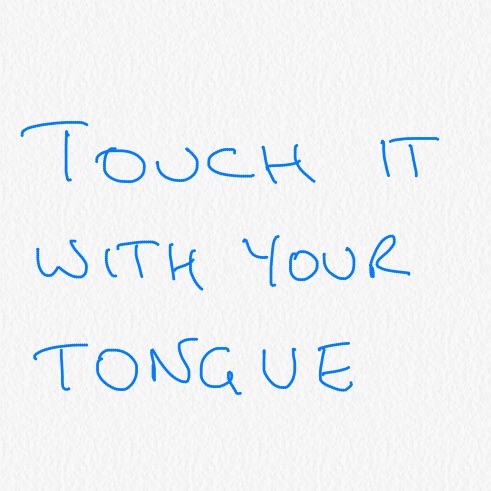 TOUCH IT
WITH YOUR
TONGUE